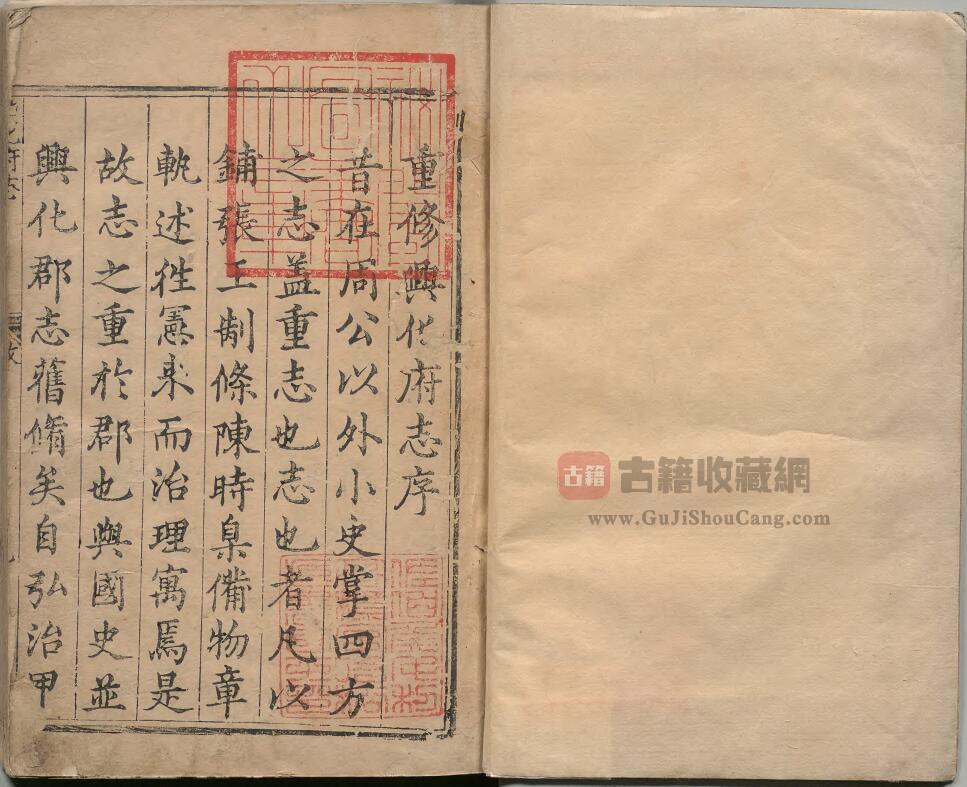 重修興化府志序
昔在周公以外小史掌四方
之志盖重志也志也者凡以
鋪張王制條陳時臬備物章
軌述徃憲来而治理寓焉是
故志之重於郡也與國史並
興化郡志舊脩矣自弘治甲
古籍 古籍收藏網
www.GuJiShouCang.com